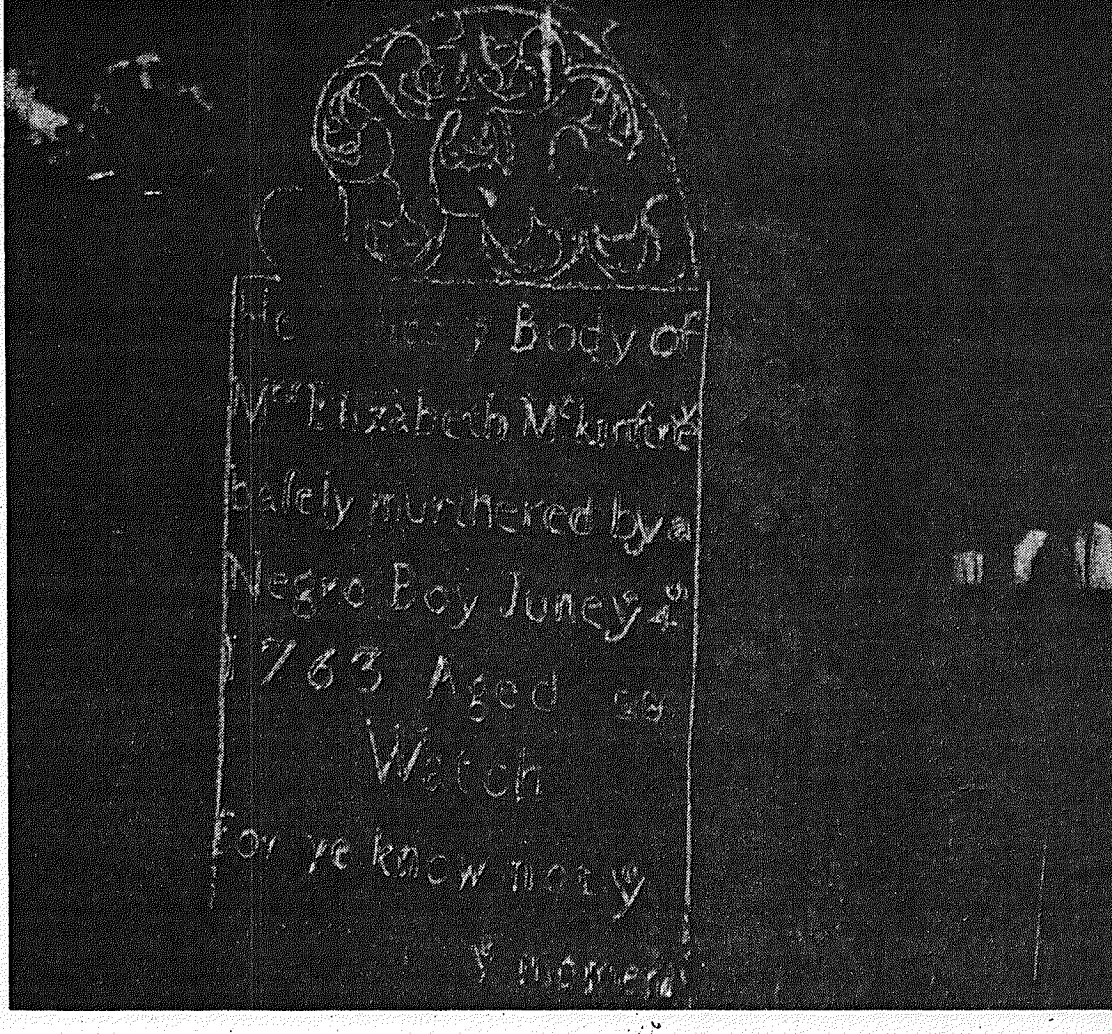 He lies yͤ Body of
Mʳˢ Elizabeth Mᶜkinſtrey
baſely murthered by a
Negro Boy June yͤ 4ᵗʰ
1763 Aged
Watch
For ye know not yͤ
yͤ moment